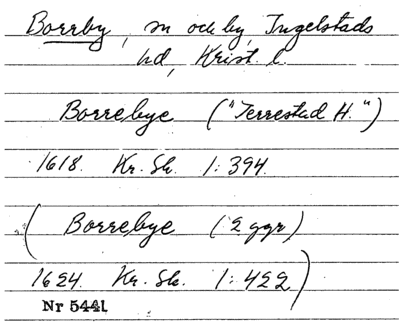 Borrby, sn och by, Ingelstads
hd, Krist. l.
Borrebye ("Terrestad H.")
1618. Kr. Sk. 1:394.
(Borrebye (2 ggr)
1624. Kr. Sk. 1:422)
Nr 5441